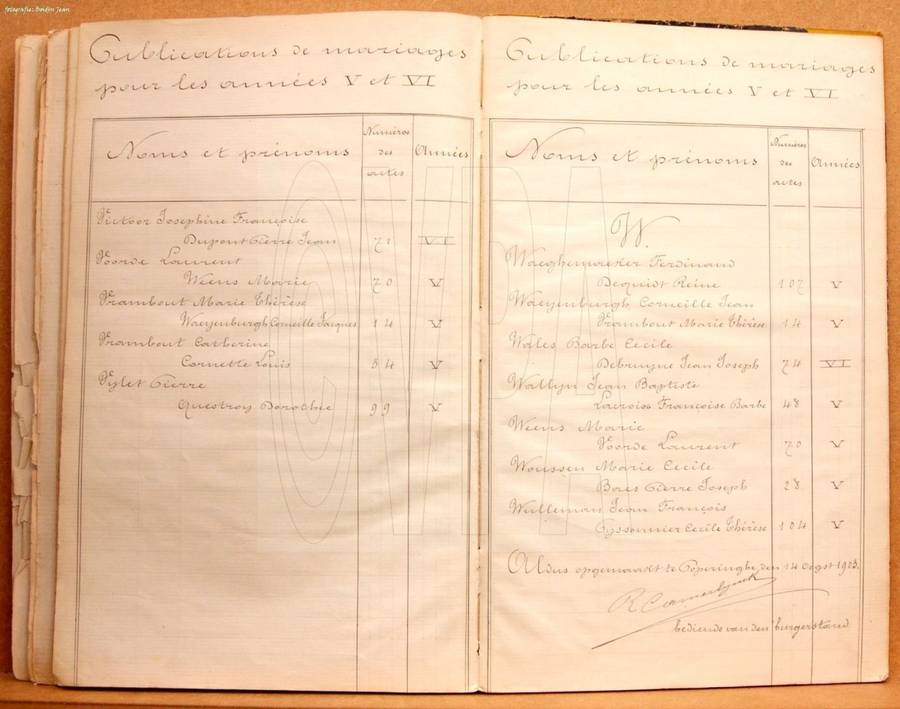 fotografie: Boidin Jean
Publications de mariages
pour les années V et VI
Noms et prénoms
Numéros
des
actes
Années
Victoor Josephine Françoise
Dupont Pierre Jean 71 VI
Voorde Laurent
Weens Marie 70 V
Vrambout Marie Thérèse
Waeyenburgh Corneille Jacques 14 V
Vrambout Catherine
Cornette Louis 54 V
Vylet Pierre
Questroy Dorothée 99 V
Publications de mariages
pour les années V et VI
Noms et prénoms
Numéros
des
actes
Années
W.
Waeghemaeker Ferdinand
Dequidt Reine 107 V
Waeyenburgh Corneille Jean
Vrambout Marie Thérèse 14 V
Wales Barbe Cecile
Debruyne Jean Joseph 74 VI
Wallyn Jean Baptiste
Lacroix Françoise Barbe 48 V
Weens Marie
Voorde Laurent 70 V
Woussen Marie Cecile
Baes Pierre Joseph 28 V
Wulleman Jean François
Cecile Thérèse 104 V
Aldus opgemaakt te Poperinghe, den 14 Oogst 1923.
bediende van den burgerstand